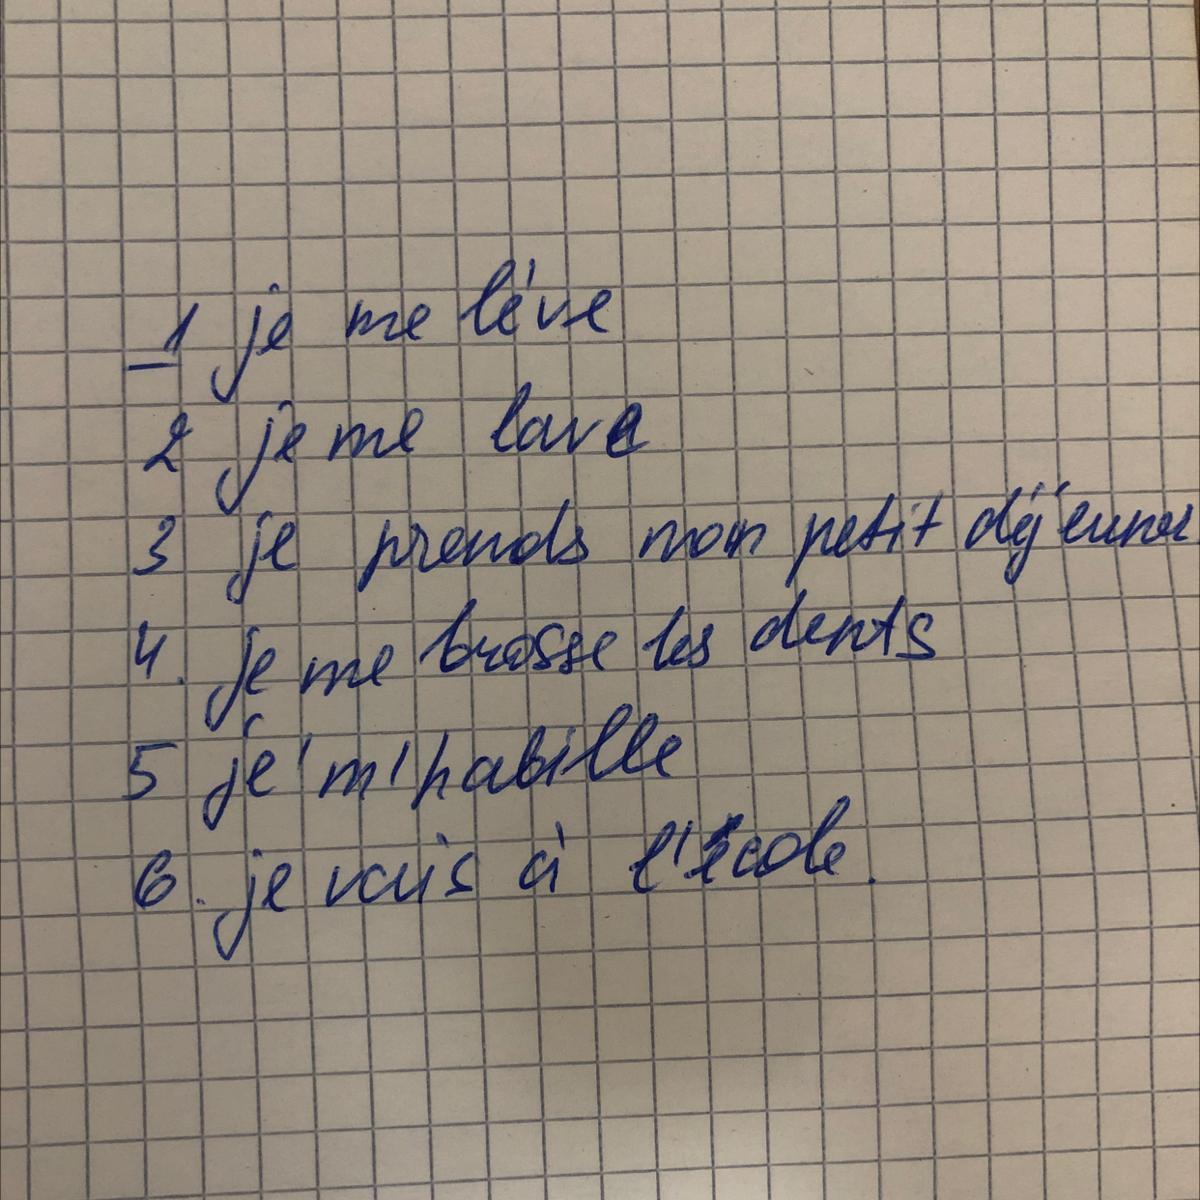 1 je me léve
2 je me lave
3 je prends mon petit déjeuner
4. je me brosse les dents
5 je' m'habille
6. je vais à l'école.